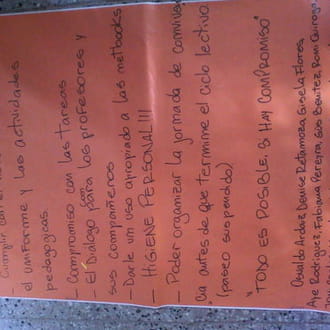 Cumplir con el
el uniforme y las actividades
pedagogicas.
- Compromiso con las tareas
- El Dialogo con para los profesores y
sus compañeros
- Darle un uso apropiado a las netbooks
- HIGIENE PERSONAL!!!
- Poder organizar la jornada de conviven
cia antes de que termime el ciclo lectivo.
(paseo suspendido)
"TODO ES POSIBLE, SI HAY COMPROMISO"
Osvaldo Ardoz, Denise Retamoza, Gisela Flores,
Aye Rodriguez, Fabiana Pereyra, Gus Benitez, Romi Quiroga,